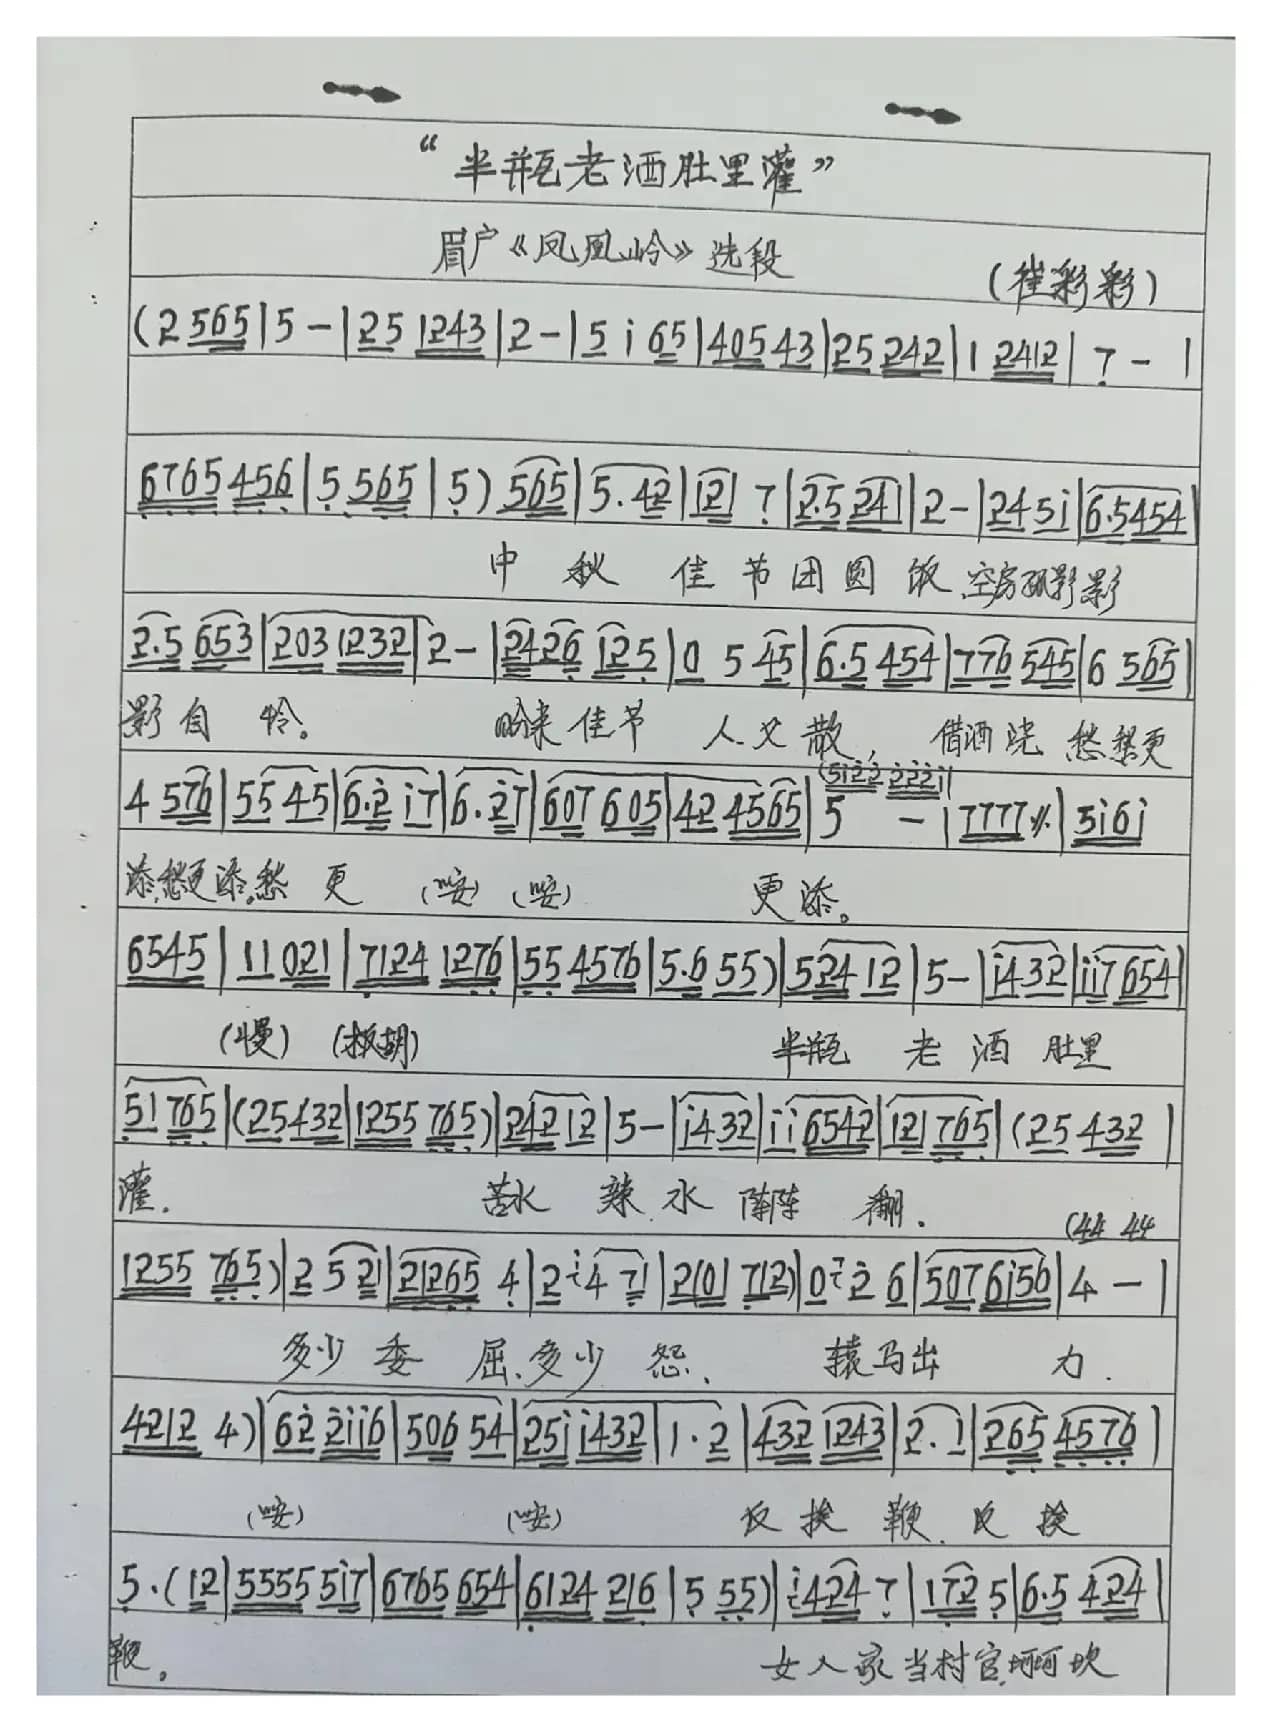 “半瓶老酒肚里灌”
眉户《凤凰岭》选段
(崔彩彩)
(2 565|5-|25 1243|2-|5 i 65|405 43|25 242|1 2412|7-|
6765 456|5 565|5) 565|5.42|121 7|2.5 241|2-|245i|6.5454|
中秋佳节团圆饭.空房孤影影
2.5 653|203 1232|2-|2426 125|0 5 45|6.5 454|776 545|6 565|
影自怜。 哈来佳节人又散,借酒浇愁愁更
(5i22 222i|
4 576|55 45|6.2 i7|6.27|607 605|42 4565|5 -|7777 ٪|5i6i
添,愁更添,愁更(咹)(咹) 更添。
6545|11 021|7124 1276|55 4576|5.6 55)|524 12|5-|i432|ii7654|
(慢) (板胡) 半瓶老酒肚里
51 765|(25 432|1255 765)|242 12|5-|i432|ii 6542|121 765|(25 432|
灌. 苦水辣水阵阵翻.
(44 44
1255 765)|2 5 21|21265 4|2 i 4 71|2(01 712)|0 7 2 6|507 6i56|4-|
多少委屈,多少怨. 辕马出力.
4212 4)|62 2ii6|506 54|25i i432|1.2|432 1243|2.1|265 4576|
(咹) (咹) 反挨鞭.反挨
5.(12|5555 5i7|6765 654|6124 216|5 55)|i424 7|172 5|6.5 424|
鞭。 女人家当村官,坷坷坎